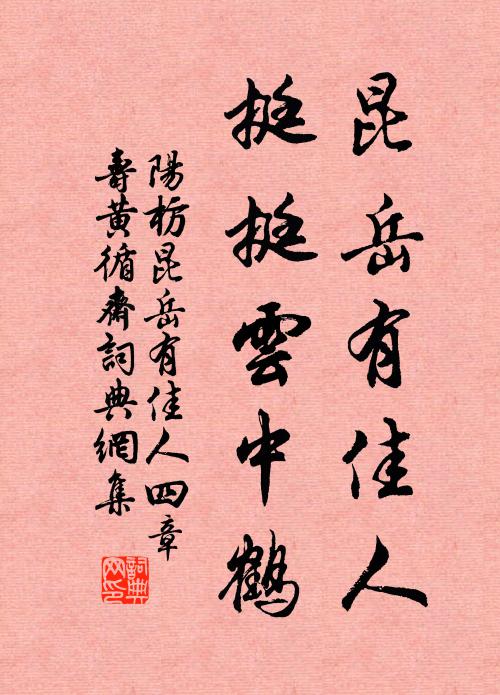 昆岳有佳人
挺挺雲中鶴
陽枋昆岳有佳人四章
壽黃循齋詞典網集
詞典网印